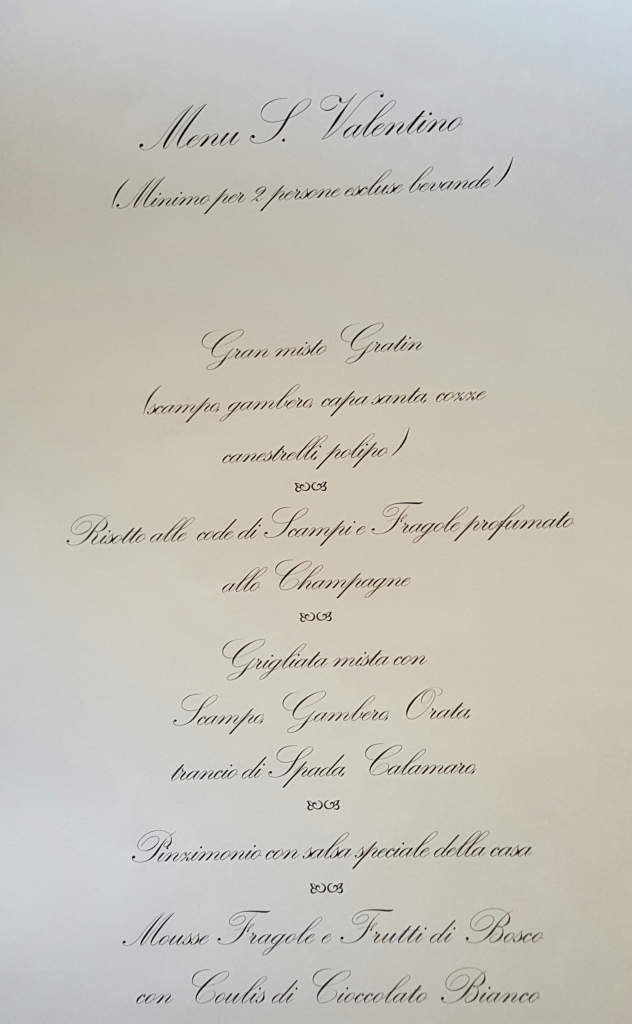 Menu S. Valentino
(Minimo per 2 persone escluse bevande)
Gran misto Gratin
(scampo, gambero, capa santa, cozze
canestrelli, polipo)
Risotto alle code di Scampi e Fragole profumato
allo Champagne
Grigliata mista con
Scampo, Gambero, Orata,
trancio di Spada, Calamaro,
Pinzimonio con salsa speciale della casa
Mousse Fragole e Frutti di Bosco
con Coulis di Cioccolato Bianco